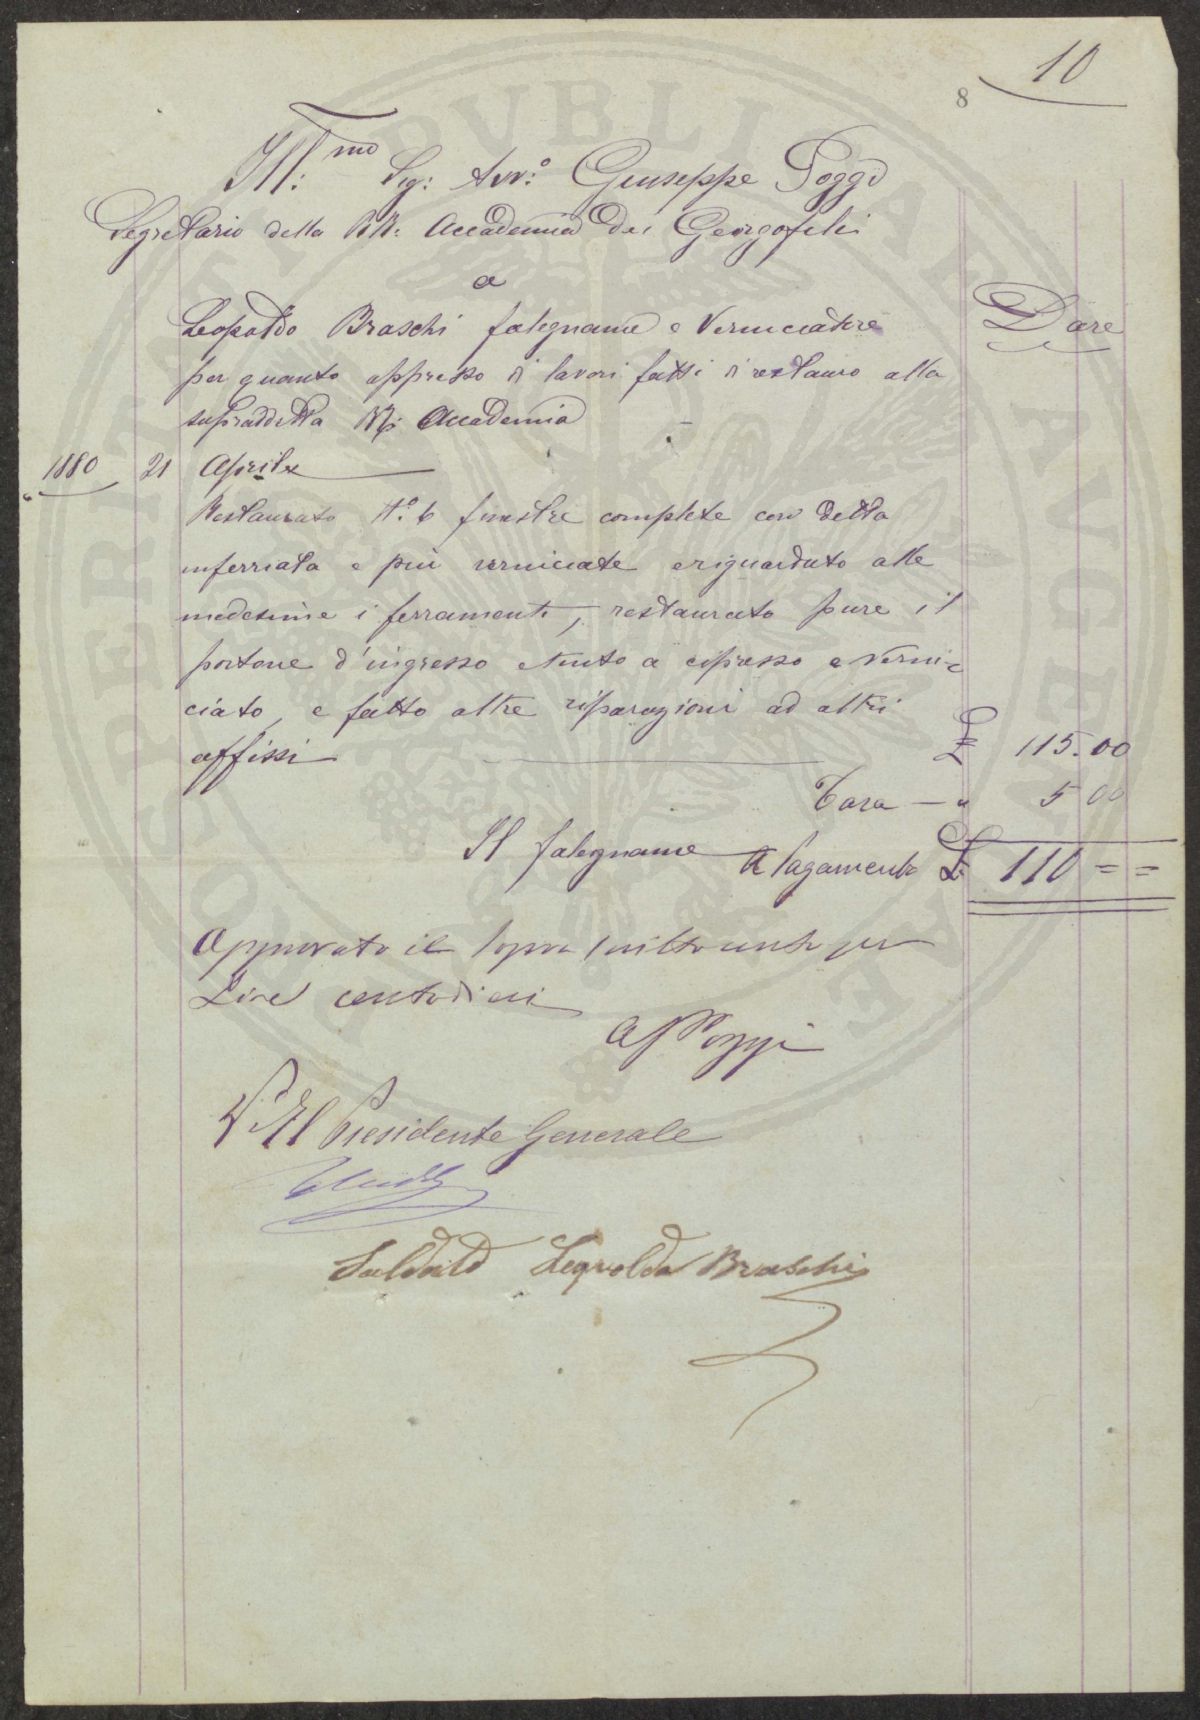 10
8
Ill:mo Sig: Avv:o Giuseppe Poggi
Segretario della R. Accademia dei Georgofili
a
Leopoldo Braschi falegname e Verniciatore
Dare
per quanto appresso di lavori fatti di restauro alla
supraddetta R. Accademia
1880 21 Aprile
Restaurato N.o 6 finestre complete con della
inferriata e più verniciate e riguardato alle
medesime i ferramenti, restaurato pure il
portone d'ingresso e tinto a cipresso e verni=
ciato, e fatto altre riparazioni ad altri
affissi £ 115.00
Tara — " 5 00
Il falegname A Pagamento £ 110 = =
Approvato il sopra scritto conto per
Lire centodieci
Poggi
V° Il Presidente Generale
Saldato Leopoldo Braschi